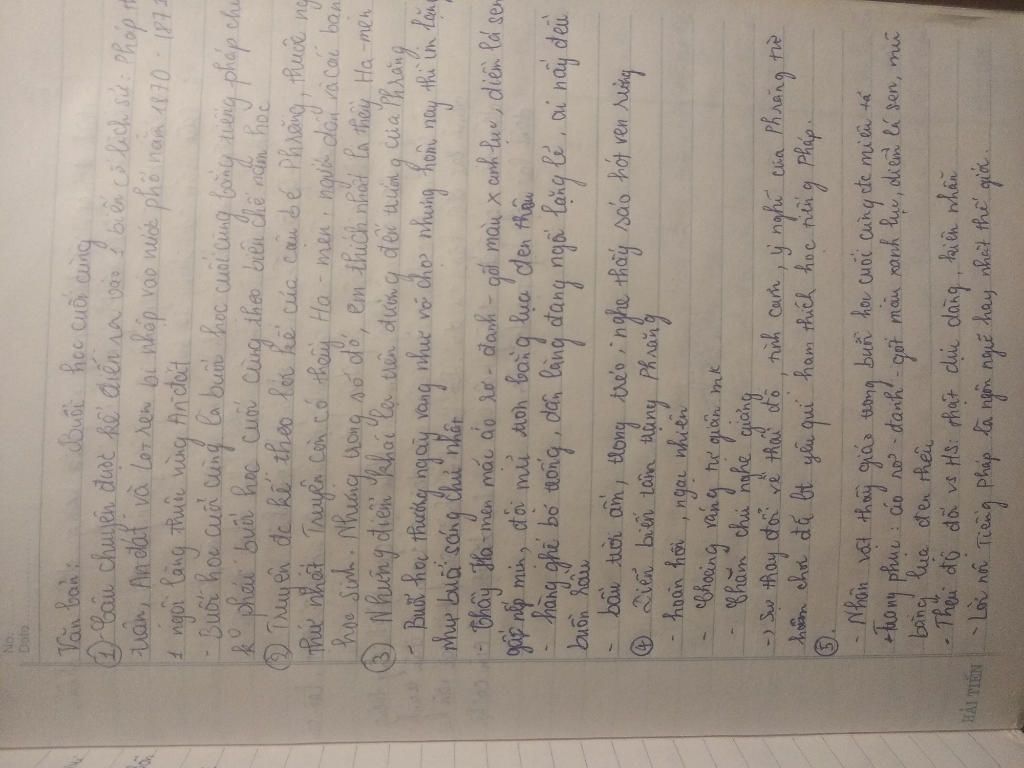 No.
Date
Văn bản: Buổi học cuối cùng
① - Câu chuyện được kể diễn ra vào 1 biến cố lịch sử: Pháp
trận, Andát và Lo-ren bị nhập vào nước phổ năm 1870 - 1871
1 ngôi làng thuộc vùng Andát
- Buổi học cuối cùng là buổi học cuối cùng bằng tiếng pháp
k° phải buổi học cuối cùng theo biên chế năm học
② Truyện đc kể theo lời kể của cậu bé Phrăng, thuộc
thứ nhất. Truyện còn có thầy Ha-men, người dân và các bạn
học sinh. Nhưng trong số đó, em thích nhất là thầy Ha-men
③ Những diễn khái lạ trên đường đối tường của Phrăng
- Buổi học thường ngày vang như vỡ chợ nhưng hôm nay thì im lặng
như buổi sáng chủ nhật
- Thầy Ha-men mái áo rơ-đanh-gốt màu xanh lục, diềm lá sen
gấp nếp mịn, đội mũ tròn bằng lụa đen thêu
- hàng ghế bỏ trống, dân làng đang ngồi lặng lẽ, ai nấy đều
buồn rầu
- bầu trời ấm, trong trẻo, nghe thấy sáo hót ven rừng
④ Diễn biến tâm trạng Phrăng
- hoãn hồi, ngại nhiên
- Choáng váng tự giận mk
- Chăm chú nghe giảng
-> Sự thay đổi về thái độ, tình cảm, ý nghĩ của Phrăng từ
hầm chơi đã bt yêu quí ham thích học tiếng Pháp.
⑤.
- Nhân vật thầy giáo trong buổi học cuối cùng đc miêu tả
+ Trang phục: áo rơ-đanh-gốt màu xanh lục, diềm lá sen, mũ
bằng lụa đen thêu
- Thái độ đối vs HS: phạt dịu dàng, kiên nhẫn
- Lời nói Tiếng pháp là ngôn ngữ hay nhất thế giới.
HẢI TIẾN